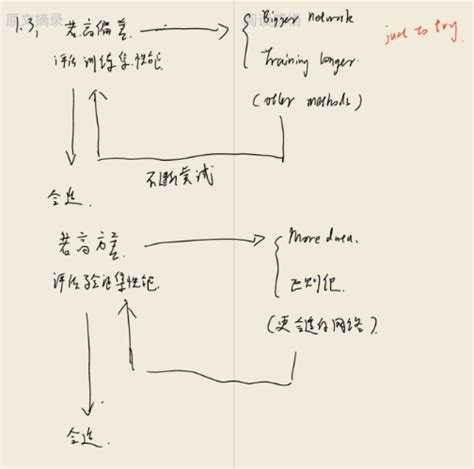 原文摘录
1.3, 若高偏差.
Bigger network
just to try.
评估训练集性能.
Training longer.
(other methods)
不断尝试
合适.
若高方差.
More data.
评估验证集性能.
正则化.
(更合适的网络).
合适.